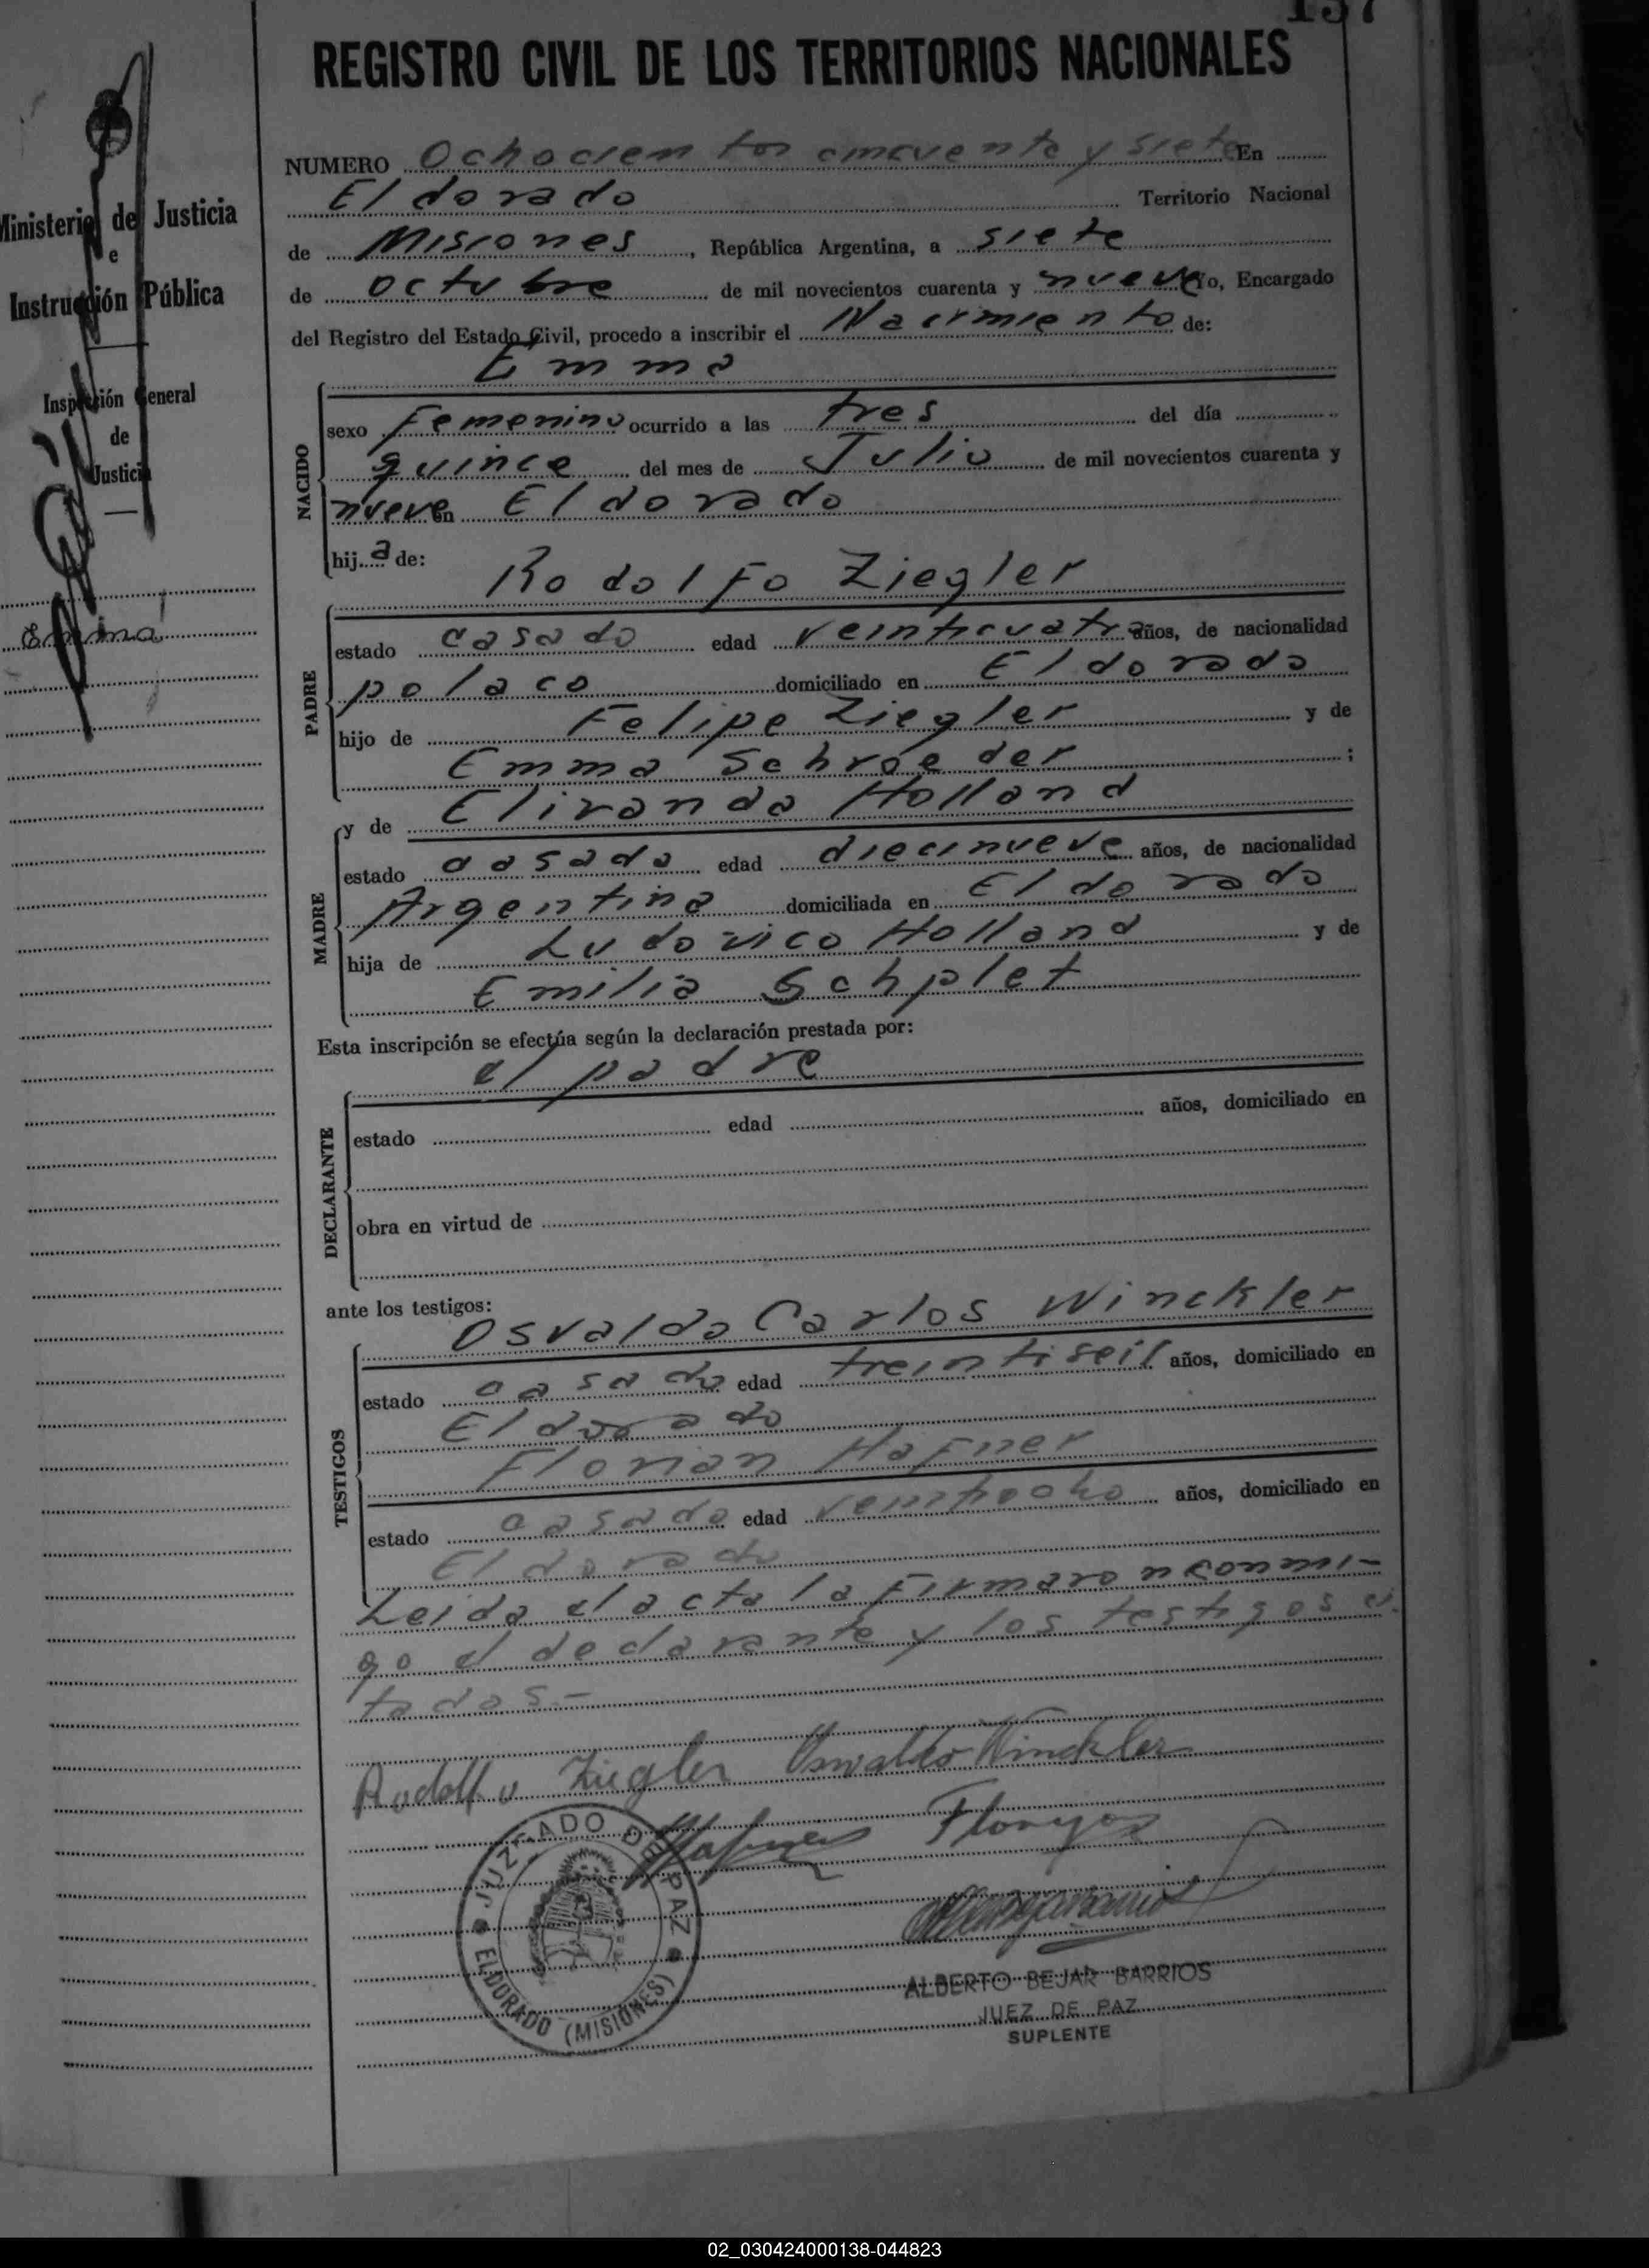 137
REGISTRO CIVIL DE LOS TERRITORIOS NACIONALES
Ministerio de Justicia
e
Instrucción Pública
Inspección General
de
Justicia
Emma
NUMERO Ochocientos cincuenta y siete En
Eldorado Territorio Nacional
de Misiones, República Argentina, a siete
de octubre de mil novecientos cuarenta y nueve Yo, Encargado
del Registro del Estado Civil, procedo a inscribir el Nacimiento de:
Emma
NACIDO
sexo Femenino ocurrido a las tres del día
quince del mes de Julio de mil novecientos cuarenta y
nueve en Eldorado
hij a de:
Rodolfo Ziegler
PADRE
estado casado edad veinticuatro años, de nacionalidad
polaco domiciliado en Eldorado
hijo de Felipe Ziegler y de
Emma Schroeder ;
y de Eliranda Holland
MADRE
estado casada edad diecinueve años, de nacionalidad
Argentina domiciliada en Eldorado
hija de Ludovico Holland y de
Emilia Schplet
Esta inscripción se efectúa según la declaración prestada por:
el padre
DECLARANTE
estado edad años, domiciliado en
obra en virtud de
ante los testigos:
Osvaldo Carlos Winckler
TESTIGOS
estado casado edad treintiseis años, domiciliado en
Eldorado
Florian Hafner
estado casado edad veintiocho años, domiciliado en
Eldorado
Leida el acta la firmaron conmi-
go el declarante y los testigos ci
tados.-
Rudolfo Ziegler Oswaldo Winckler
Hafner
JUZGADO DE PAZ
ELDORADO (MISIONES)
ALBERTO BEJAR BARRIOS
JUEZ DE PAZ
SUPLENTE
02_030424000138-044823